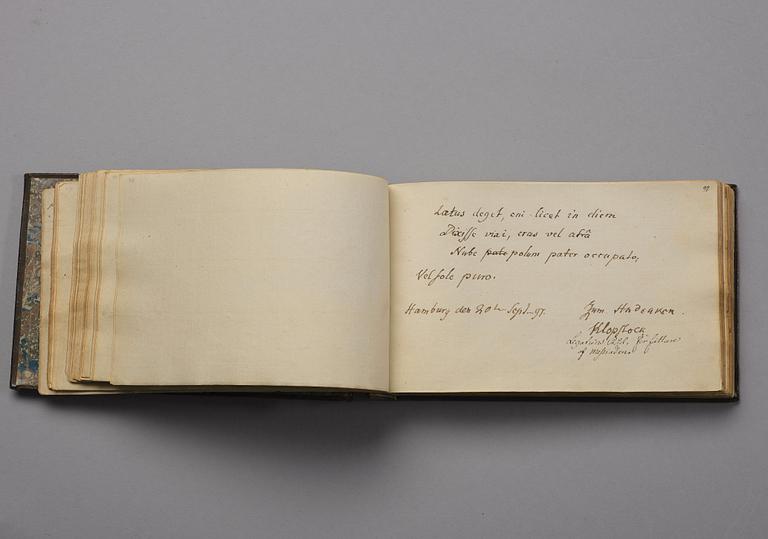 99
Lætus deget, cui licet in diem
Dixisse vixi, cras vel atrâ
Nube polum pater occupato,
Vel sole puro.
Hamburg den 20te Sept. 97.
Zum Andenken.
Klopstock
författare
af Messiaden.